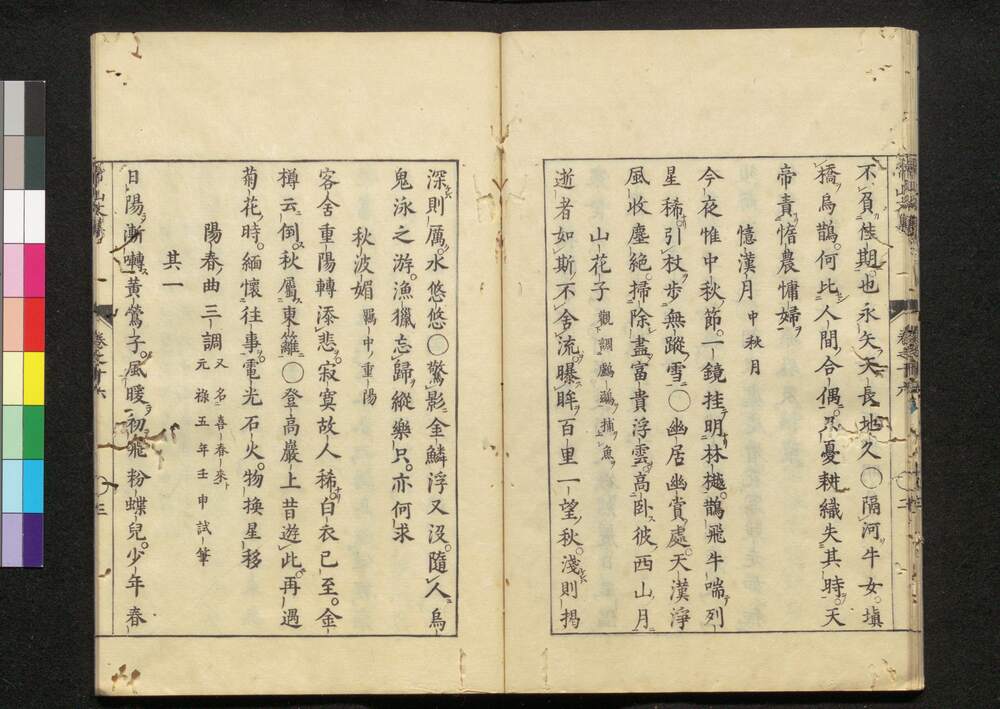 不負佳期也永矢天長地久○隔河牛女。塡
橋烏鵲。何比人間合偶。只憂耕織失其時。天
帝責惰農慵婦
憶漢月 中秋月
今夜惟中秋節。一鏡挂明林樾。鵲飛牛喘列
星稀。引杖步無蹤雪○幽居幽賞處。天漢淨
風收塵絕。掃除盡富貴浮雲。高臥彼西山月
山花子 觀調鸕鷀捕魚
逝者如斯不舍流。曝眸百里一望秋。淺則揭
深則厲。水悠悠○驚影金鱗浮又沒。隨人烏
鬼泳之游。漁獵忘歸縱樂只。亦何求
秋波媚 羈中重陽
客舍重陽轉添悲。寂寞故人稀。白衣已至。金
樽云倒。秋屬東籬○登高巖上昔遊此。再過
菊花時。緬懷往事。電光石火。物換星移
陽春曲三調 又名喜春來 元祿五年壬申試筆
其一
日陽漸囀黃鶯子。風暖初飛粉蝶兒。少年春